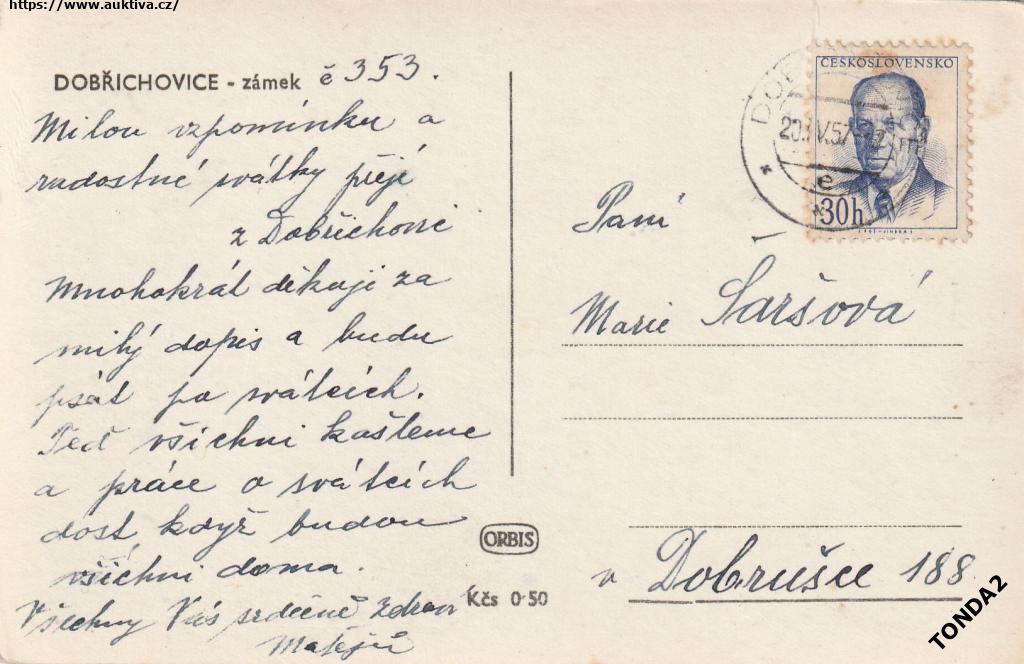 https://www.auktiva.cz/
DOBŘICHOVICE - zámek č 353.
Milou vzpomínku a
radostné svátky přejí
z Dobřichovic
Mnohokrát děkuji za
milý dopis a budu
psát po svátcích.
Teď všichni kašleme
a práce o svátcích
dost, když budou
všichni doma.
Všechny Vás srdečně zdraví
Matějů
ORBIS
Kčs 0·50
ČESKOSLOVENSKO
20.IV.57
e
30h
Paní
Marie Šaršová
v Dobrušce 188
TONDA2